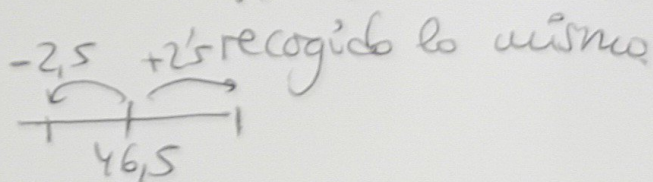 -2,5 +2'5 recogido lo mismo
46,5